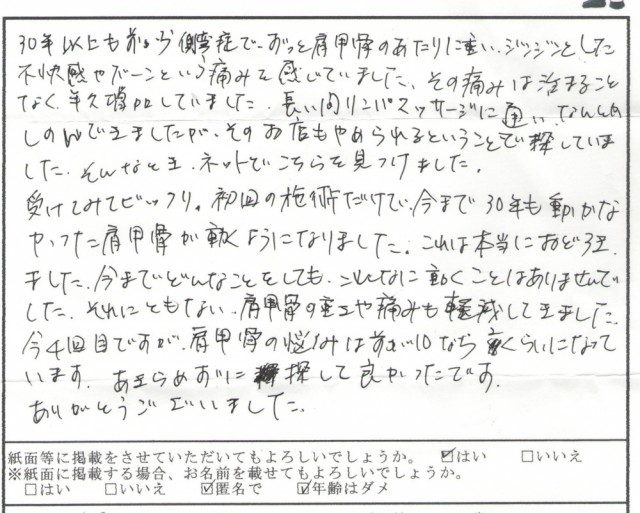 30年以上も前から側弯症で、ずっと肩甲骨のあたりに重い、ジンジンとした
不快感やズーンという痛みを感じていました。その痛みは治まること
なく、年々増していました。長い間リンパマッサージに通い、なんとか
しのいできましたが、そのお店もやめられるということで探していま
した。そんなとき、ネットでこちらを見つけました。
受けてみてビックリ。初回の施術だけで、今まで30年も動かな
かった肩甲骨が動くようになりました。これは本当におどろき
ました。今までどんなことをしても、こんなに動くことはありませんで
した。それにともない、肩甲骨の重さや痛みも軽減してきました。
今4回目ですが、肩甲骨の悩みは前が10なら くらいになって
います。あきらめずに探して良かったです。
ありがとうございました。
紙面等に掲載をさせていただいてもよろしいでしょうか。 ☑はい □いいえ
※紙面に掲載する場合、お名前を載せてもよろしいでしょうか。
□はい □いいえ ☑匿名で ☑年齢はダメ